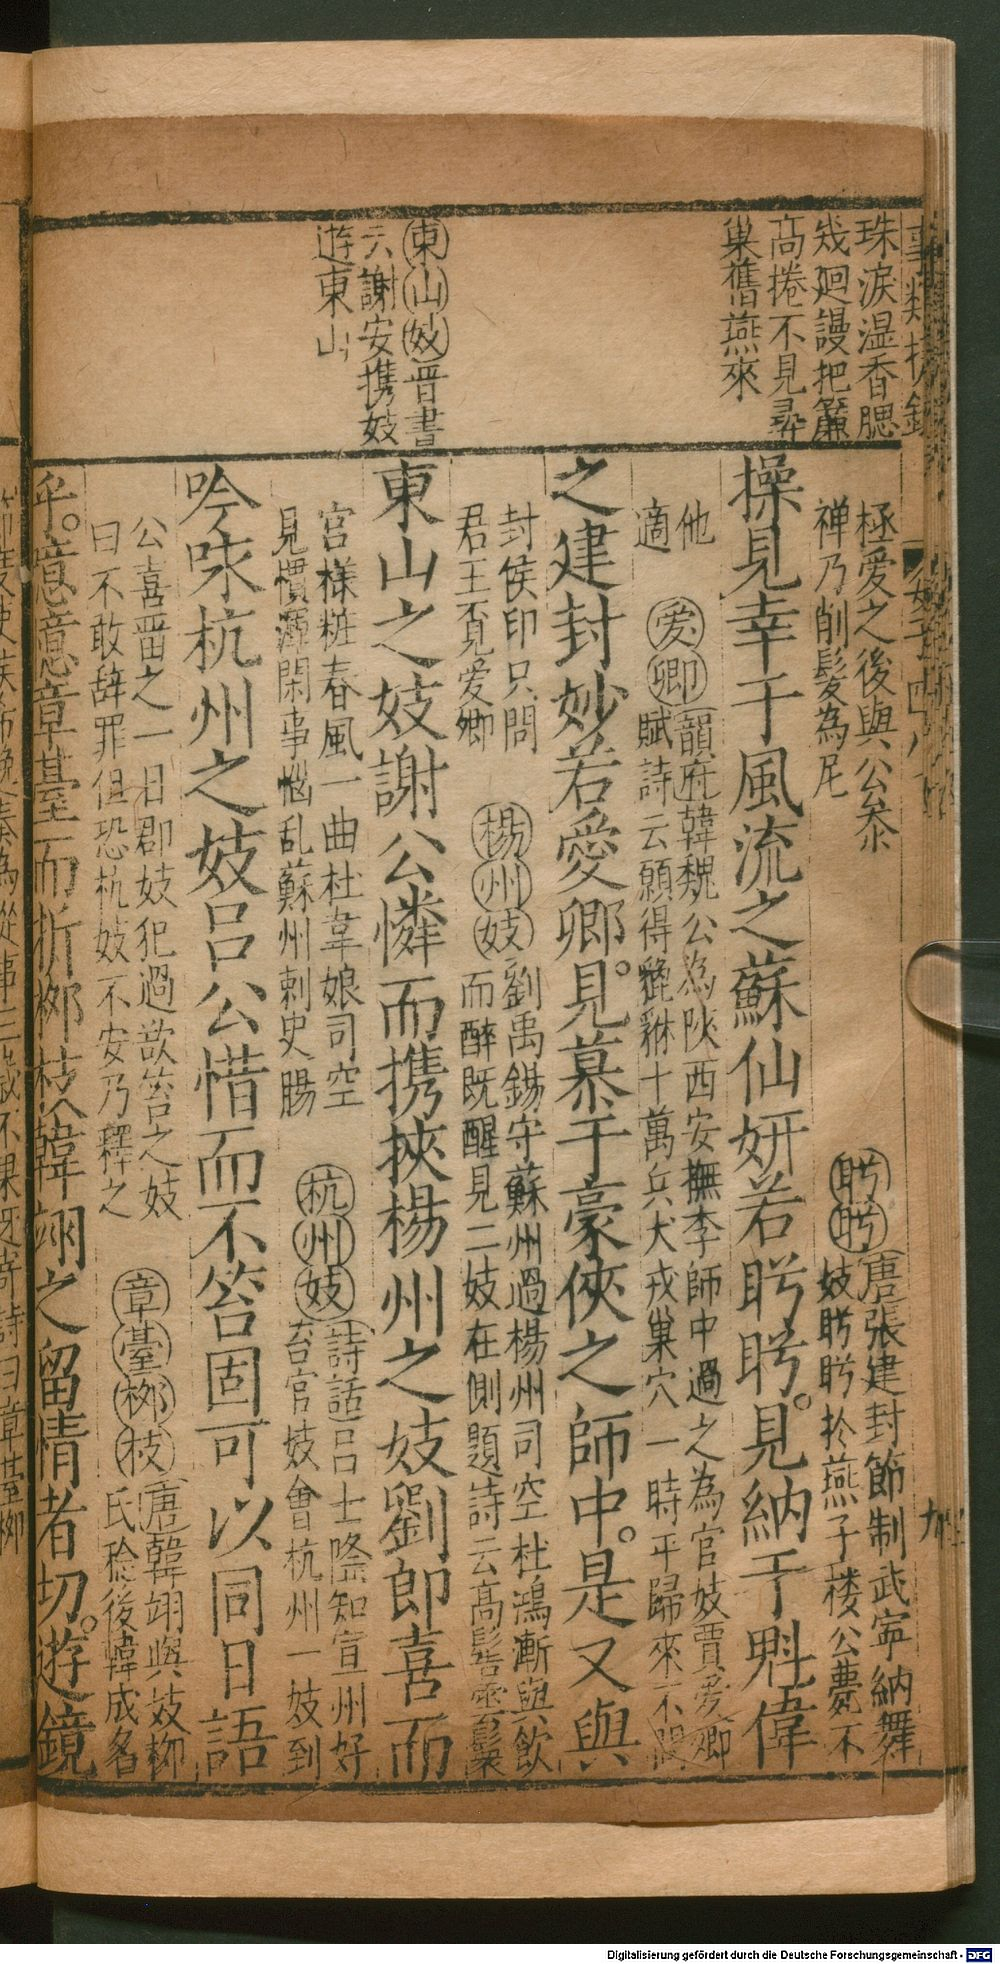 珠淚湿香腮
㡬廻謾把簾
高捲不見尋
巢舊燕來
東山妓晋書
云謝安携妓
遊東山
極愛之後與公叅
禅乃削髮為尼
聍聍唐張建封節制武寧納舞
妓聍聍扵燕子楼公薨不
操見幸于風流之蘇仙妍若聍聍。見納于魁偉
他
適
爱卿韻府韓魏公為陜西安撫李師中過之為官妓賈爱卿
賦詩云願得貔貅十萬兵犬戎巢穴一時平歸來不問
之建封妙若愛卿。見慕于豪俠之師中。是又與
封侯印只問
君王覔爱卿
楊州妓劉禹錫守蘇州過楊州司空杜鴻漸與飲
而醉既醒見二妓在側題詩云高髻雲鬟
東山之妓謝公憐而携挾楊州之妓劉郎喜而
宫様粧春風一曲杜韋娘司空
見慣渾閑事惱乱蘇州刺史腸
杭州妓詩話吕士隆知宣州好
笞官妓會杭州一妓到
吟咏杭州之妓吕公惜而不笞固可以同日語
公喜畱之一日郡妓犯過欲笞之妓
曰不敢辞罪但恐杭妓不安乃釋之
章臺桞枝唐韓翊與妓桞
氏稔後韓成名
乎。噫噫章臺而折桞枝韓翊之留情者切。遊鏡
Digitalisierung gefördert durch die Deutsche Forschungsgemeinschaft - DFG